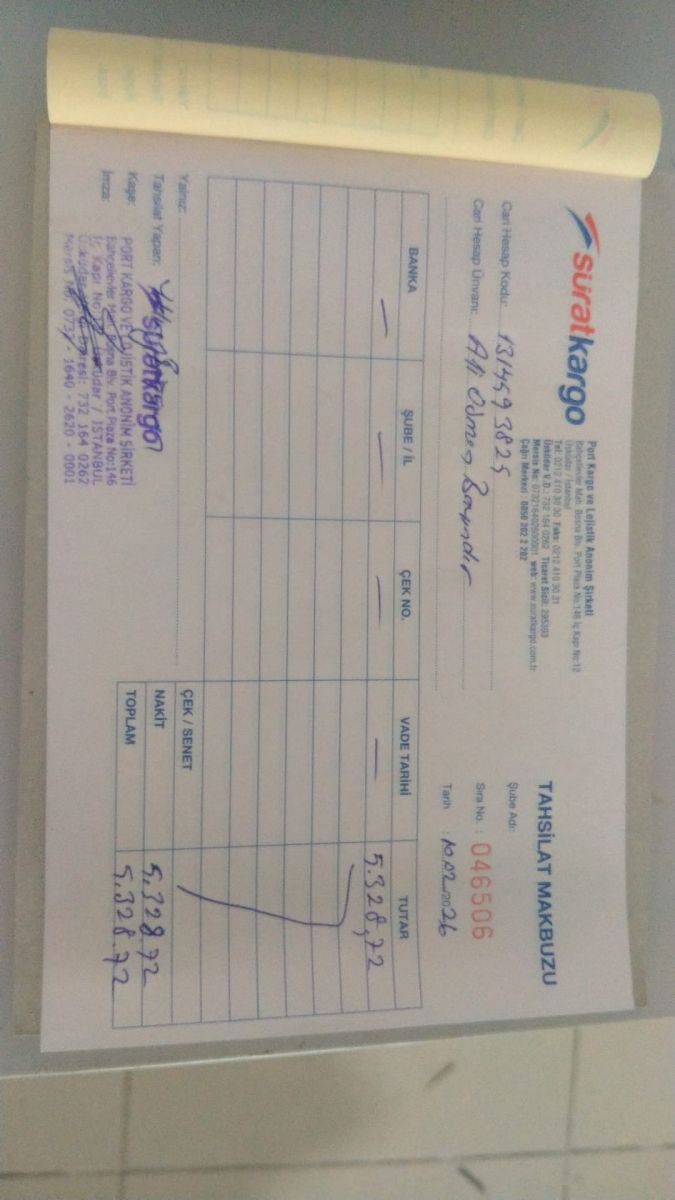 süratkargo
Port Kargo ve Lojistik Anonim Şirketi
Bahçelievler Mah. Bosna Blv. Port Plaza No:146 İç Kapı No:12
Üsküdar / İstanbul
Tel: 0212 410 30 30 Faks: 0212 410 30 31
Üsküdar V.D.: 732 164 0262 Ticaret Sicil: 295393
Mersis No: 0732164026200001 web: www.suratkargo.com.tr
Çağrı Merkezi : 0850 202 2 202
TAHSİLAT MAKBUZU
Şube Adı:
Sıra No. : 046506
Tarih :
Cari Hesap Kodu: 1314593825
Cari Hesap Ünvanı: Ali
BANKA ŞUBE / İL ÇEK NO. VADE TARİHİ TUTAR
— — — — 5.328,72
ÇEK / SENET
NAKİT 5,328.72
TOPLAM 5.328.72
Yalnız:
Tahsilat Yapan:
Kaşe:
İmza:
süratkargo
PORT KARGO VE LOJİSTİK ANONİM ŞİRKETİ
Bahçelievler Mah. Bosna Blv. Port Plaza No:146
İç Kapı No: Üsküdar / İSTANBUL
Üsküdar 732 164 0262
Mersis No: 1640 - 2620 - 0001